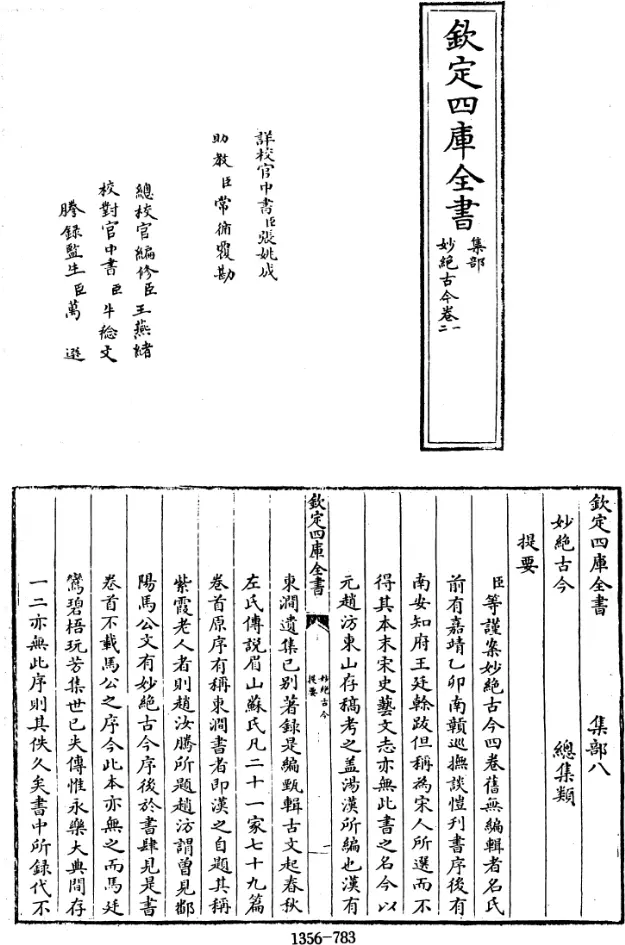 欽定四庫全書
集部
妙絕古今卷一二
詳校官中書臣張姚成
助教臣常循覆勘
總校官編修臣王燕緒
校對官中書臣牛稔文
謄錄監生臣萬選
欽定四庫全書 集部八
妙絕古今 總集類
提要
臣等謹案妙絕古今四卷舊無編輯者名氏
前有嘉靖乙卯南贛巡撫談愷刊書序後有
南安知府王廷榦跋但稱為宋人所選而不
得其本末宋史藝文志亦無此書之名今以
元趙汸東山存稿考之蓋湯漢所編也漢有
欽定四庫全書
妙絕古今
提要
一
東澗遺集已别著錄是編甄輯古文起春秋
左氏傳説眉山蘇氏凡二十一家七十九篇
卷首原序有稱東澗書者即漢之自題其稱
紫霞老人者則趙汝騰所題趙汸謂曾見鄱
陽馬公文有妙絕古今序後於書肆見是書
卷首不載馬公之序今此本亦無之而馬廷
鸞碧梧玩芳集世已失傳惟永樂大典間存
一二亦無此序則其佚久矣書中所録代不
1356-783